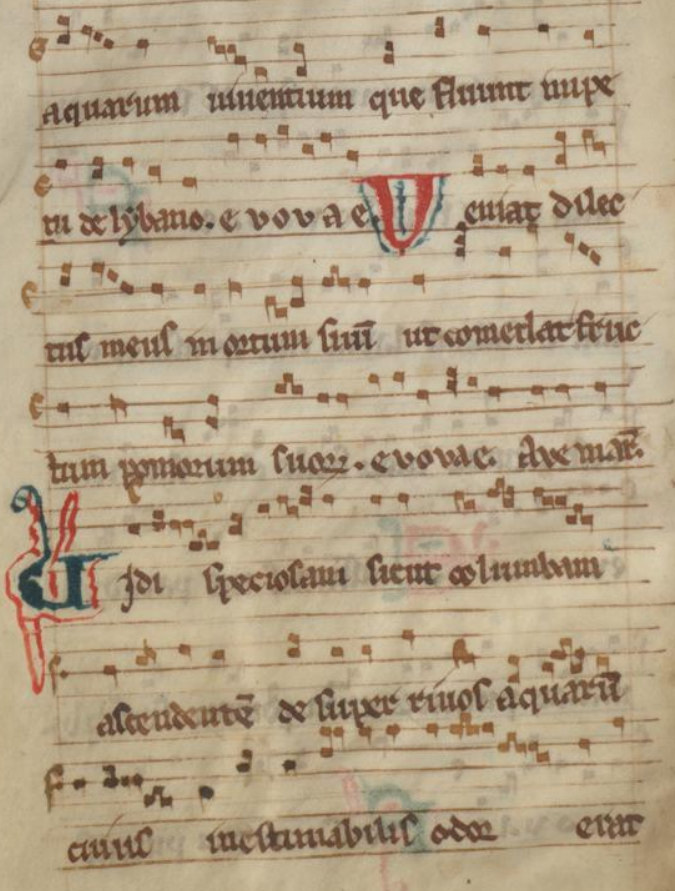 aquarum viventium que fluunt impe
tu de lybano. e v o v a e. Veniat dilec
tus meus in ortum suū ut comedat fruc
tum pomorum suoꝝ. e v o v a e. Ave mar̄.
Vidi speciosam sicut columbam
ascendentē de super rivos aquarū
cuius inestimabilis odor erat